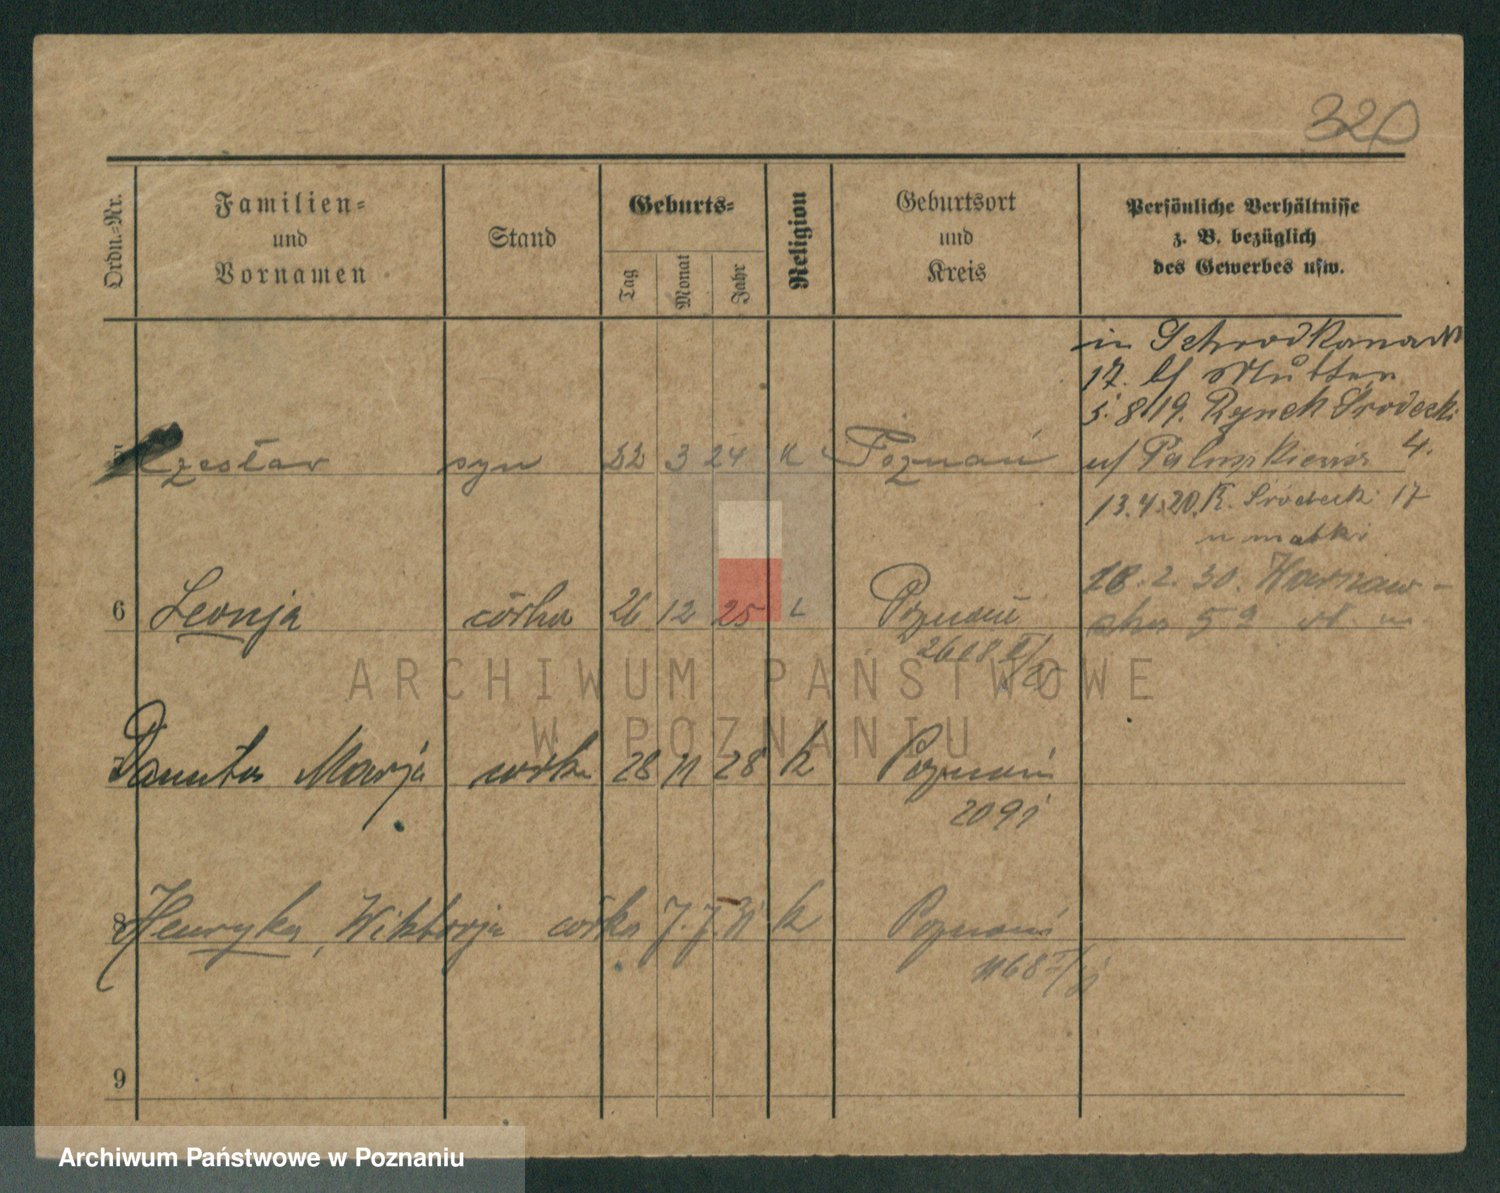 320
Ordn.-Nr.
Familien-
und
Vornamen
Stand
Geburts-
Tag
Monat
Jahr
Religion
Geburtsort
und
Kreis
Persönliche Verhältnisse
z. B. bezüglich
des Gewerbes usw.
in
17. b/ Mutter
5. 8 19. Rynek Srodecki
4.
13.4.20. R. Srodecki 17
u matki
5 Czesław syn 22 3 24 K Poznań
18. 2. 30.
6 Leonja córka 26 12 25 Poznań
Danuta Marja córka 28 11 28 k Poznań
2091
8 Henryka, Wiktorja córka 7. 7. 31 k Poznań
9
ARCHIWUM PAŃSTWOWE
W POZNANIU
Archiwum Państwowe w Poznaniu